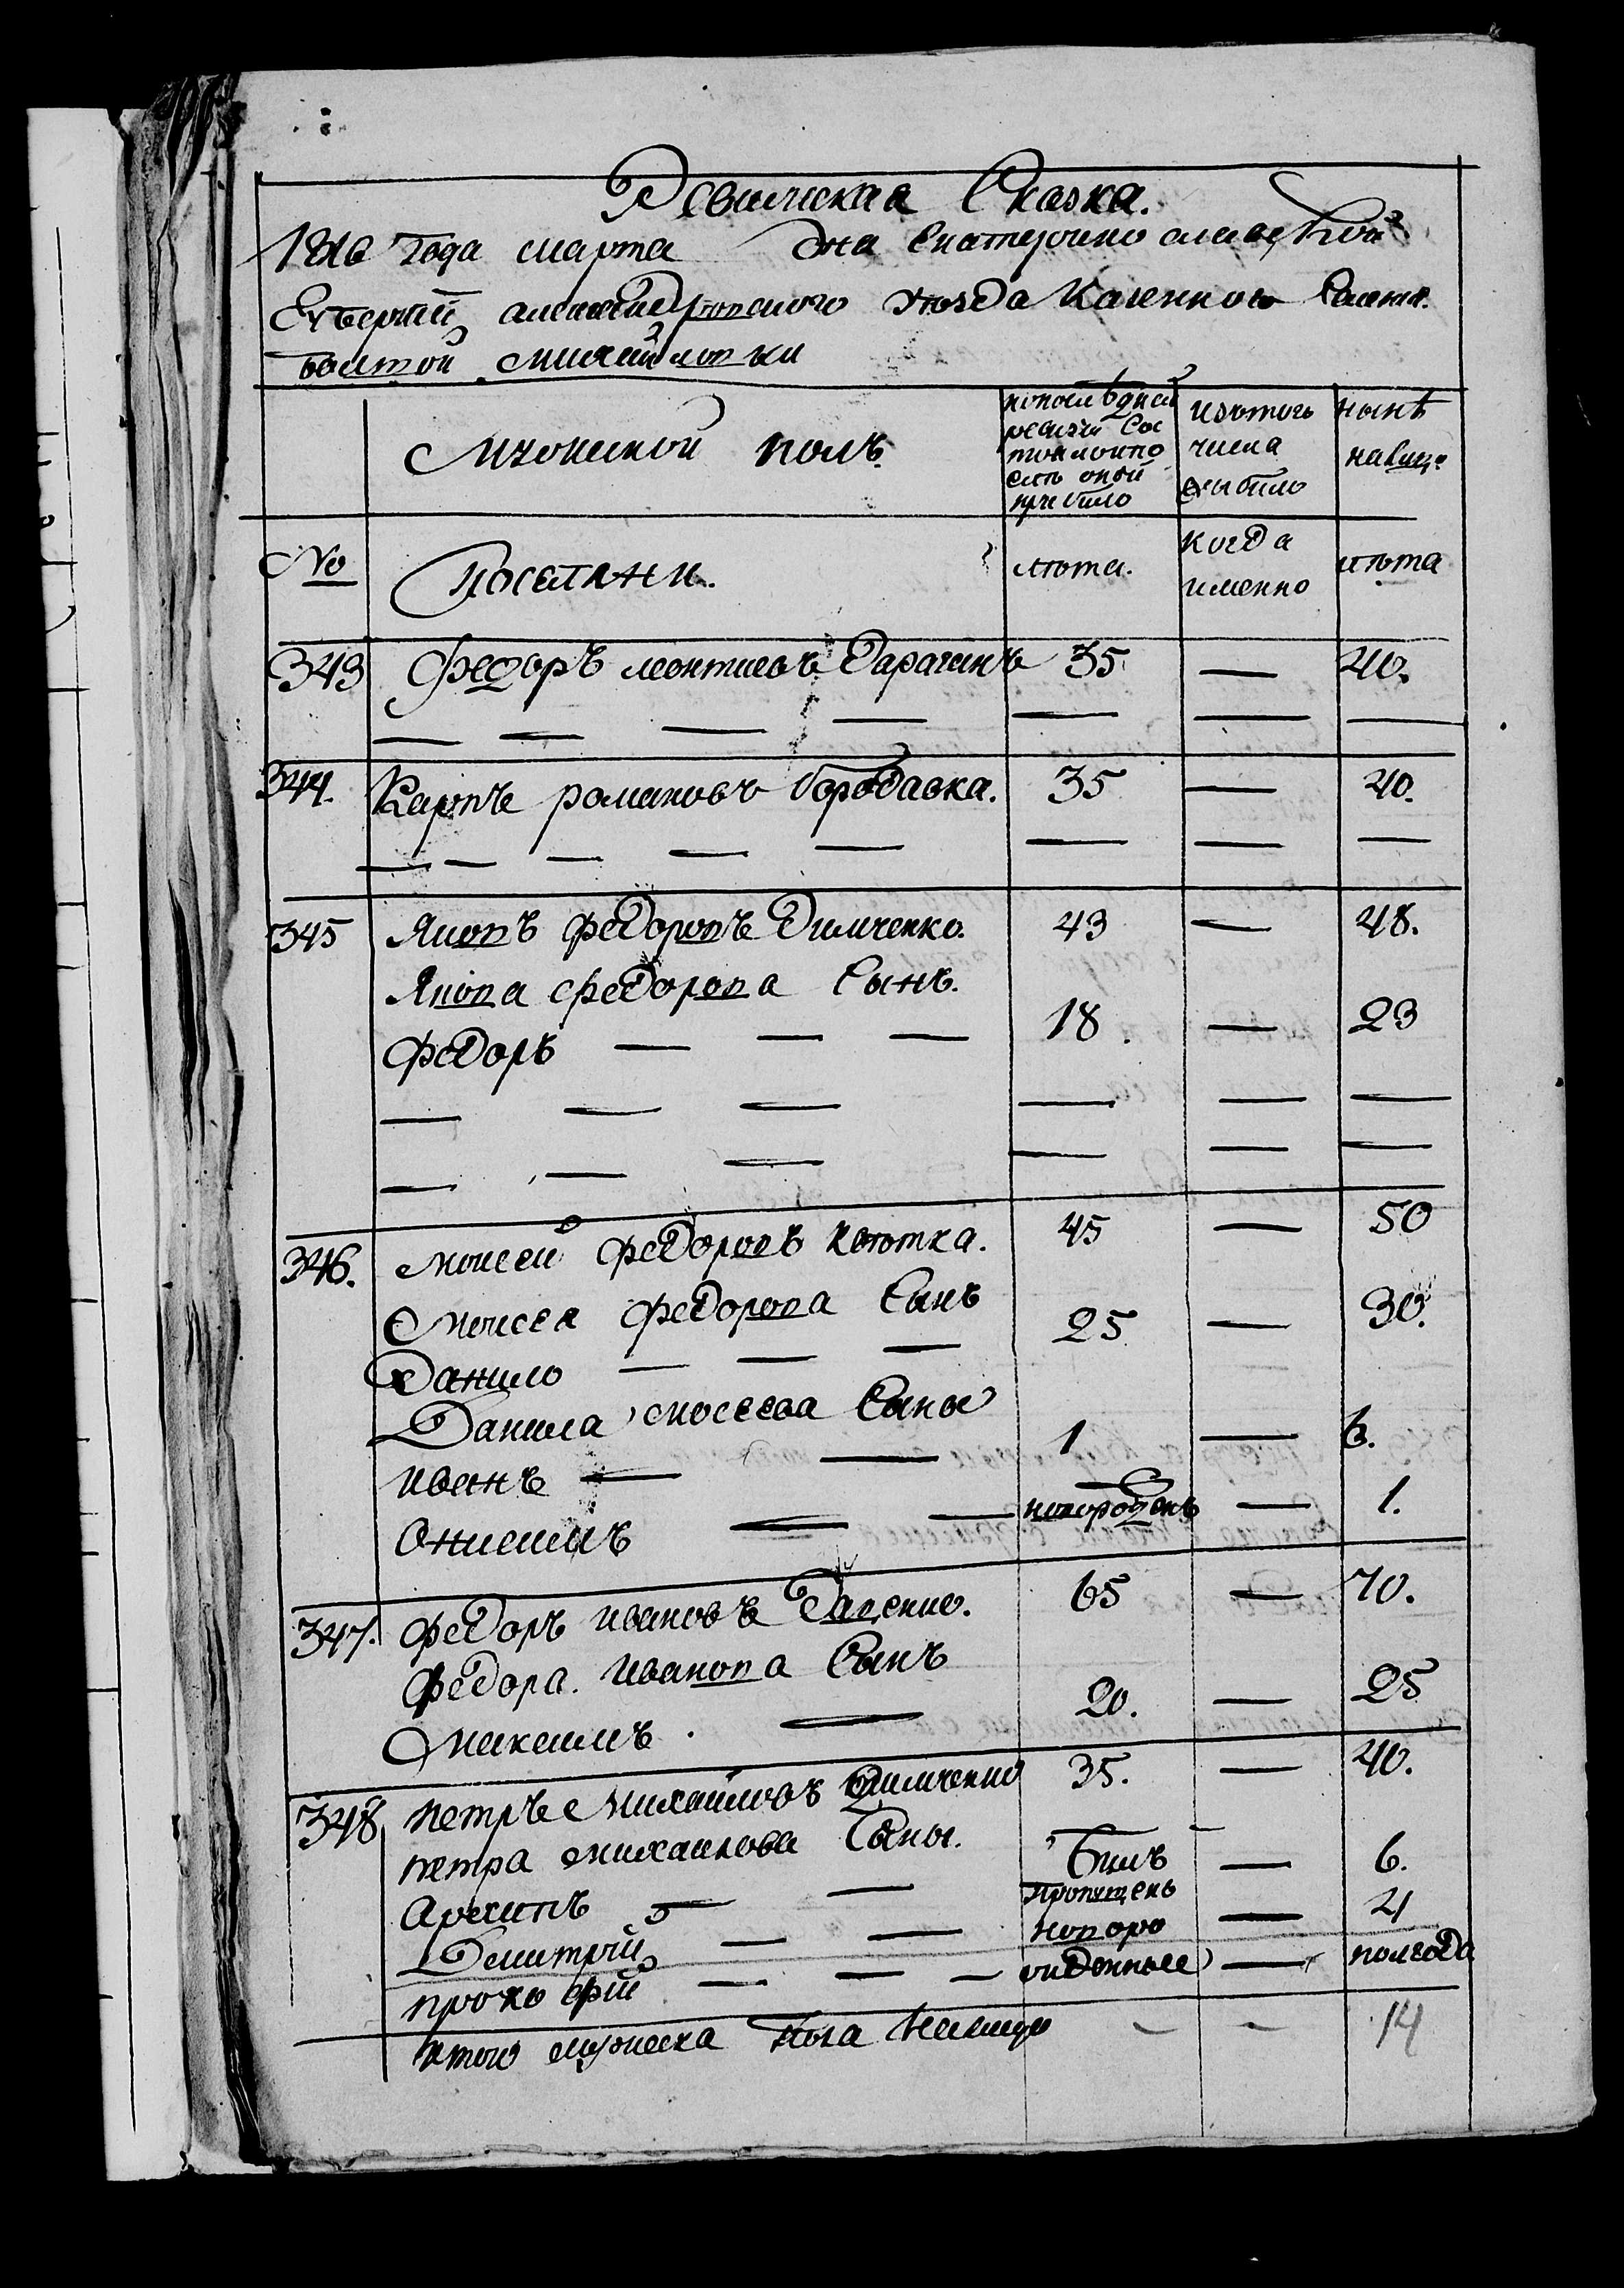 Ревизская Сказка.
1816 года марта дня Екатеринославской
Губернии александровского уезда казенного Селения
Святой Михайловки
Мужеской полъ.
по последней ревизии состояло и после оной прибыло
изътого числа выбыло
нынѣ налицо
№
Поселяни.
лѣта.
когда именно
лѣта
343 Федоръ леонтиевъ Гарагинъ 35 — 40.
344. Карпъ романовъ бородавка. 35 — 40.
345 Яковъ федоровъ Димченко. 43 — 48.
Якова федорова Сынъ.
федоръ — — — 18. — 23
346. моисей федоровъ квитка. 45 — 50
Моисея федорова Сынъ
Данило — — — 25 — 30.
Данила мосеева Сыны
иванъ — — 1 — 6.
Онисимъ — — новорожденъ — 1.
347. федоръ ивановъ Гапенко. 65 — 70.
федора. иванова Сынъ
Максимъ. — 20. — 25
348 петръ михайловъ Димченко 35. — 40.
петра михаилова Сыны.
Архипъ — — Былъ пропущенъ — 6.
Дмитрий — — новоро — 4
прокофий — — — жденные — полгода
итого мужеска пола налицо - - 14